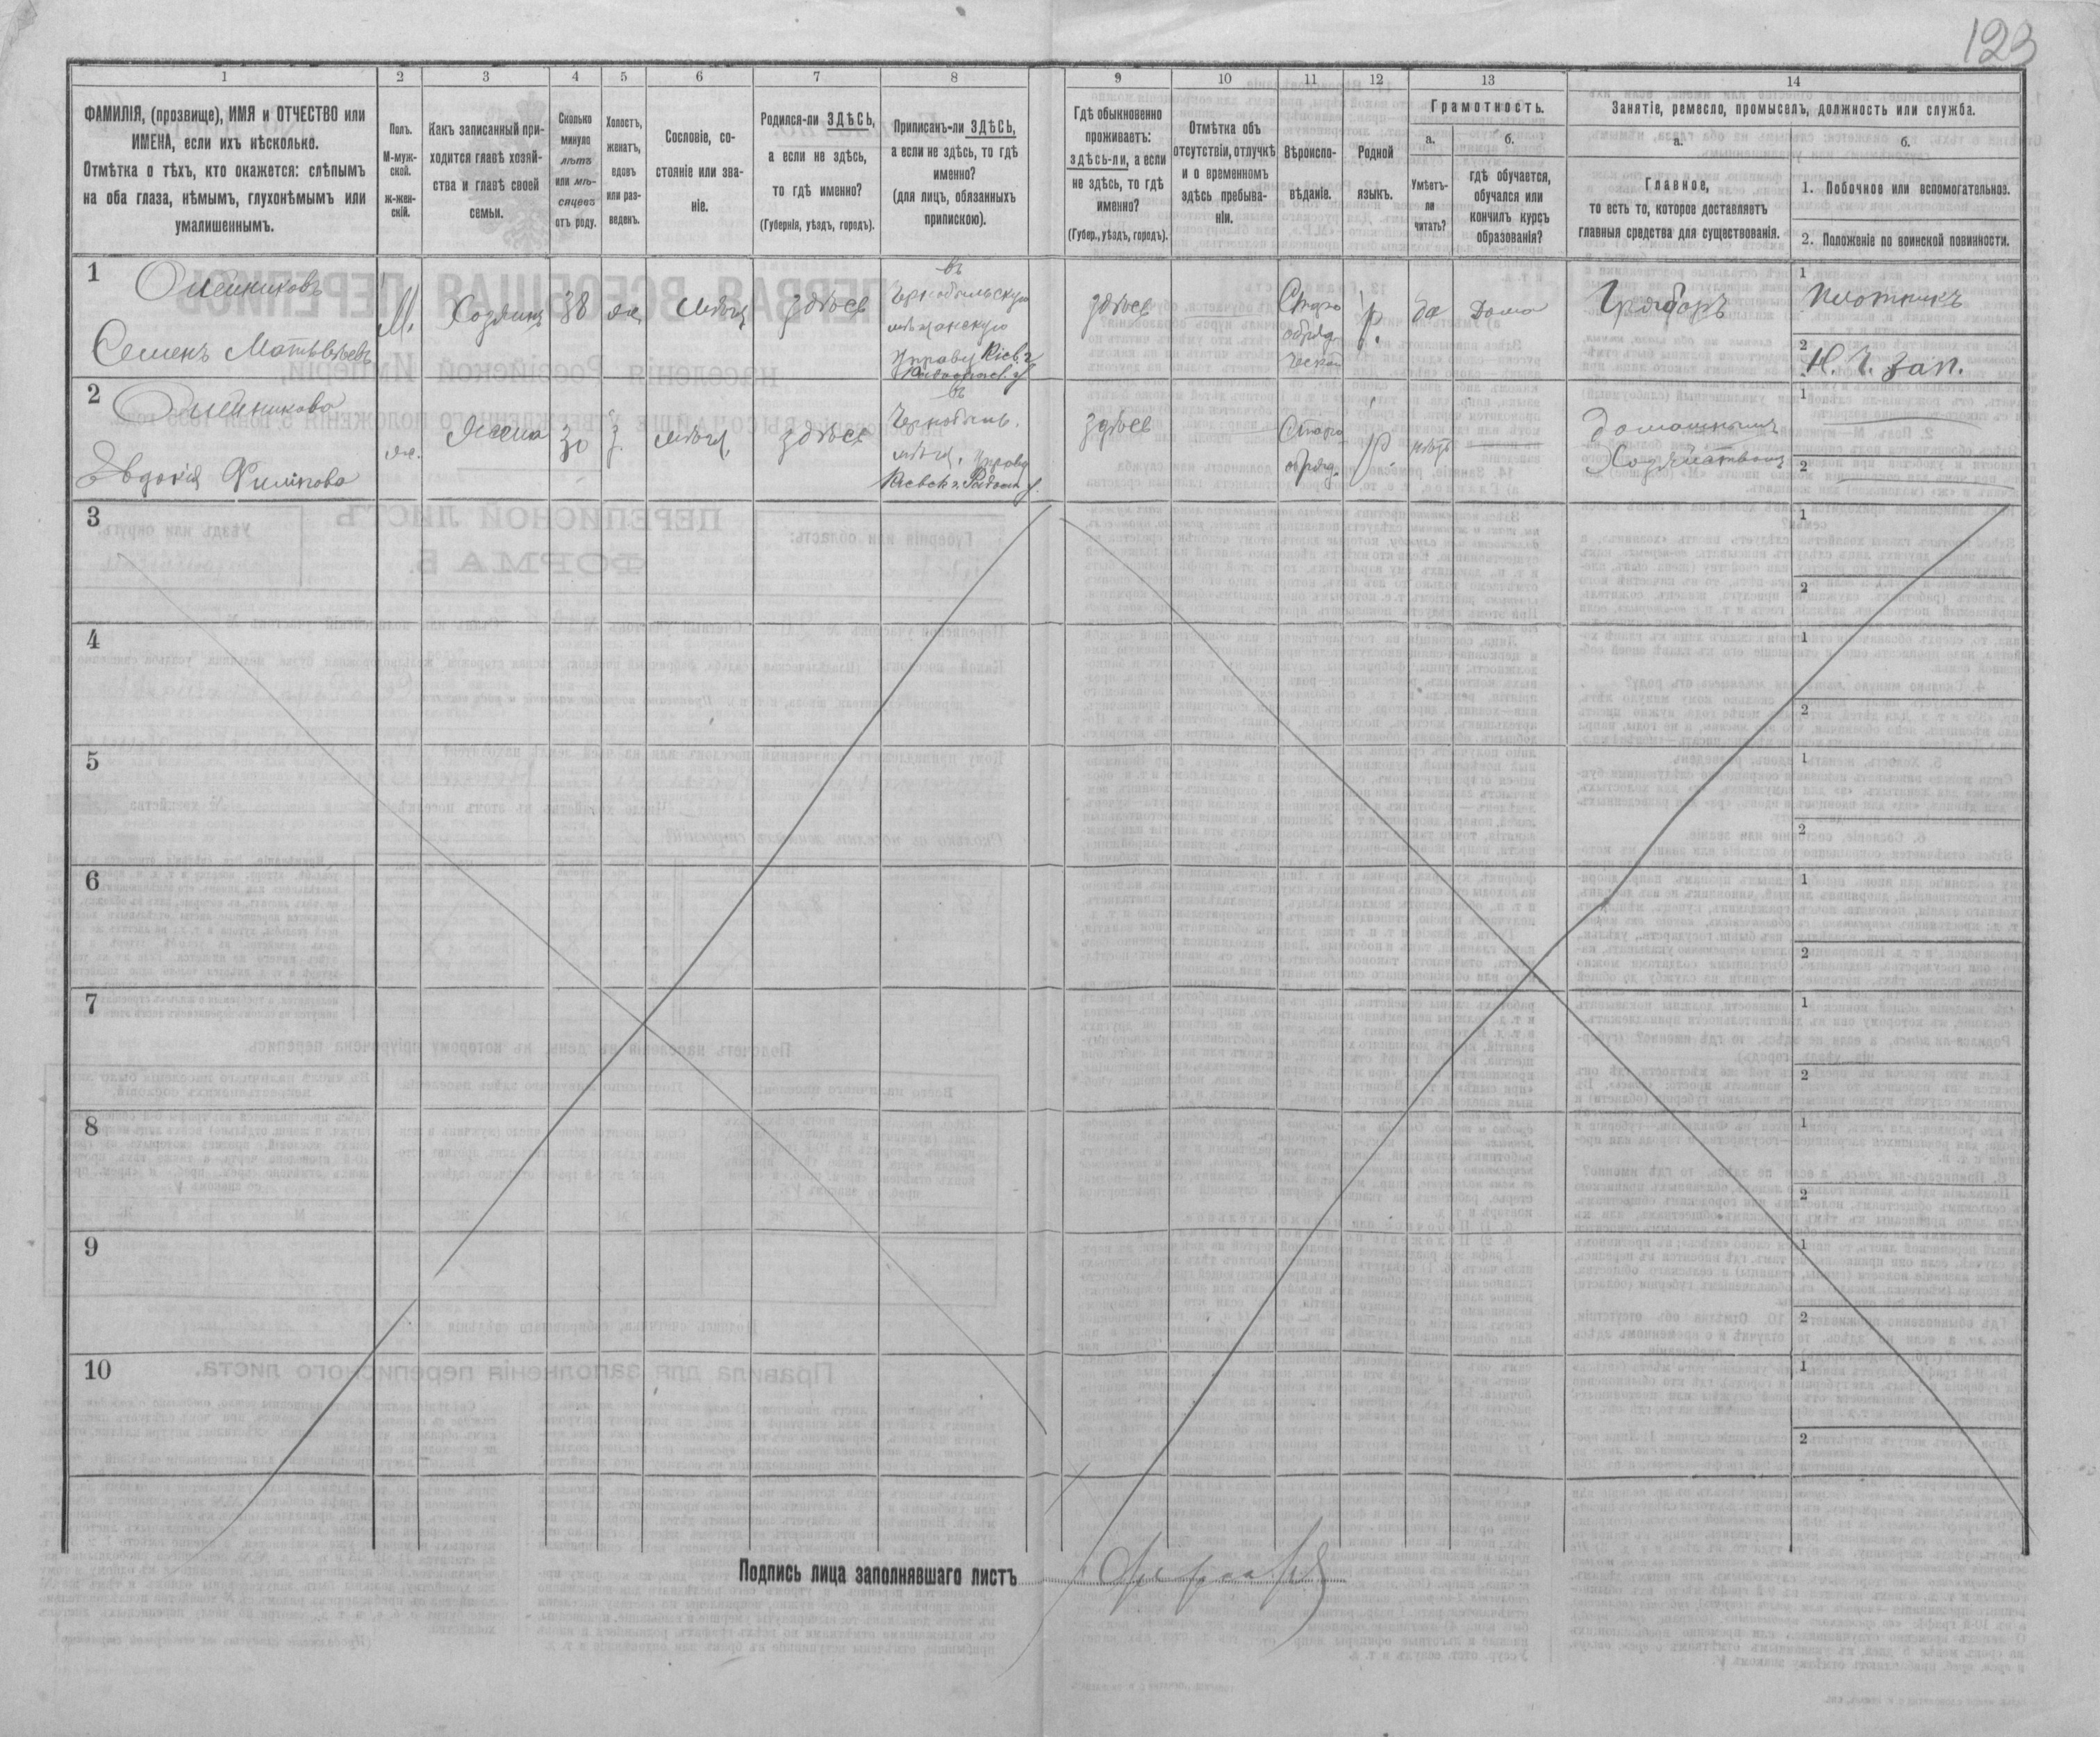 123
1
2
3
4
5
6
7
8
9
10
11
12
13
14
ФАМИЛІЯ, (прозвище), ИМЯ и ОТЧЕСТВО или
ИМЕНА, если ихъ нѣсколько.
Отмѣтка о тѣхъ, кто окажется: слѣпымъ
на оба глаза, нѣмымъ, глухонѣмымъ или
умалишеннымъ.
Полъ.
М-муж-
ской.
ж-жен-
скій.
Какъ записанный при-
ходится главѣ хозяй-
ства и главѣ своей
семьи.
Сколько
минуло
лѣтъ
или мѣ-
сяцевъ
отъ роду.
Холостъ,
женатъ,
вдовъ
или раз-
веденъ.
Сословіе, со-
стояніе или зва-
ніе.
Родился-ли ЗДѢСЬ,
а если не здѣсь,
то гдѣ именно?
(Губернія, уѣздъ, городъ).
Приписанъ-ли ЗДѢСЬ,
а если не здѣсь, то гдѣ
именно?
(для лицъ, обязанныхъ
припискою).
Гдѣ обыкновенно
проживаетъ:
здѣсь-ли, а если
не здѣсь, то гдѣ
именно?
(Губер., уѣздъ, городъ).
Отмѣтка объ
отсутствіи, отлучкѣ
и о временномъ
здѣсь пребыва-
ніи.
Вѣроиспо-
вѣданіе.
Родной
языкъ.
Грамотность.
а.
Умѣетъ-
ли
читать?
б.
гдѣ обучается,
обучался или
кончилъ курсъ
образованія?
Занятіе, ремесло, промыселъ, должность или служба.
а.
Главное,
то есть то, которое доставляетъ
главныя средства для существованія.
б.
1. Побочное или вспомогательное.
2. Положеніе по воинской повинности.
1
Олейниковъ
Семенъ Матвѣевъ
М.
Хозяинъ
38
ж
мѣщ
здѣсь
въ
Чернобыльскую
мѣщанскую
Управу Кіев. г
здѣсь
Старо
обряд
ческой
р.
да
дома
Грабарь
1
плотникъ
2
Н. ч. зап.
2
Олейникова
Евдокія Филипова
ж.
Жена
30
з
мѣщ,
здѣсь
въ
Чернобыль.
мѣщ. Управу
Кіевск. г. Радом у.
здѣсь
Старо
обряд.
р.
нѣтъ
домашнимъ
Хозяйствомъ
1
2
3
1
2
4
1
2
5
1
2
6
1
2
7
1
2
8
1
2
9
1
2
10
1
2
Подпись лица заполнявшаго листъ